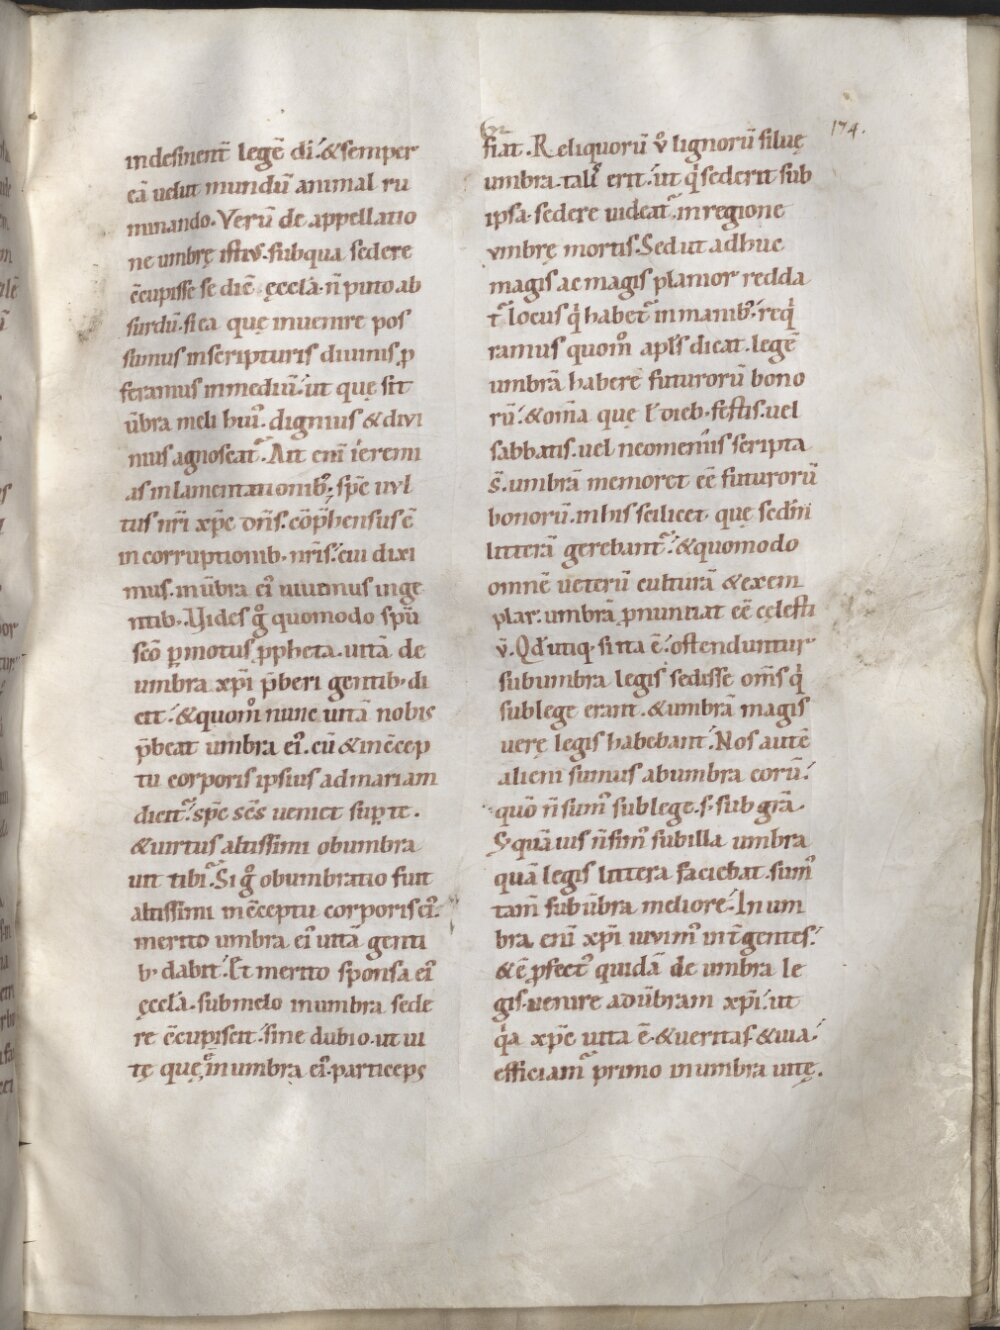 174.
indesinent̄ legē di͛. &semper
eā uelut mundū animal ru
minando. Verū de appellatio
ne umbrę istiꝰ. subqua sedere
c̄cupisse se dic̄ ęccl̄a. n̄ puto ab
surdū. si ea quę inuenire pos
sumus inscripturis diuinis ꝓ
feramus inmediū. ut quę sit
ūbra meli huiꝰ. dignius &diui
nius agnoscat᷑. Ait eni͛ ieremi
as inlamentationibꝰ; sp̄c uul
tus nr̄i xp̄c dn̄s. cōp̄hensus ē
incorruptionib. nr̄is. cui dixi
mus. inūbra eiꝰ uiuemus inge
ntib. Vides gͦ quomodo sp̄u
sc̄o ꝑmotus ꝓpheta. uitā de
umbra xp̄i p̄beri gentib. di
cit. &quomͦ nunc uitā nobis
p̄beat umbra eiꝰ. cū &inc̄cep
tu corporis ipsius admariam
dicit᷑. sp̄c sc̄s ueniet suꝑ te.
&uirtus altissimi obumbra
uit tibi᷑. Si gͦ obumbratio fuit
altissimi inc̄ceptu corporis eiꝰ.
merito umbra eiꝰ uitā genti
b. dabit. Et merito sponsa eiꝰ
ęccl̄a. submelo inumbra sede
re c̄cupiscit. sine dubio. ut ui
tę quę̄ inumbra eiꝰ. particeps
fiat. Reliquorū v̊ lignorū siluę
umbra. talis erit. ut qͥ sederit sub
ipsa. sedere uideat᷑. inregione
vmbrę mortis. Sed ut adhuc
magis ac magis planior redda
t᷑ locus qͥ habet᷑ inmanibꝰ. req
ramus quomͦ apl̄s dicat. legē
umbrā habere futurorū bono
rū. &om̄a quę ł dieb. festis. uel
sabbatis. uel neomeniis scripta
s̄. umbrā memoret eē futurorū
bonorū. inhis scilicet. quę sed̄m
litterā gerebant᷑. &quomodo
omnē ueterū culturā &exem
plar. umbrā ꝓnuntiat eē cęlesti
v̄. Qd̓ utiq. si ita ē. ostenduntur
subumbra legis sedisse om̄s qͥ
sublege erant. &umbrā magis
uerę legis habebant. Nos autē
alieni sumus abumbra eorū.
quō n̄ sumꝰ sublege. s. sub gr̄a.
S; quāuis n̄simꝰ subilla umbra
quā legis littera faciebat. sumꝰ
tam̄ subūbra meliore. In um
bra eni͛ xp̄i uiuimꝰ int̄ gentes.
&ē ꝓfectꝰ quidā de umbra le
gis. uenire adūbram xp̄i. ut
qͥa xp̄c uita ē. &ueritas. &uia.
efficiam᷑ primo inumbra uitę.